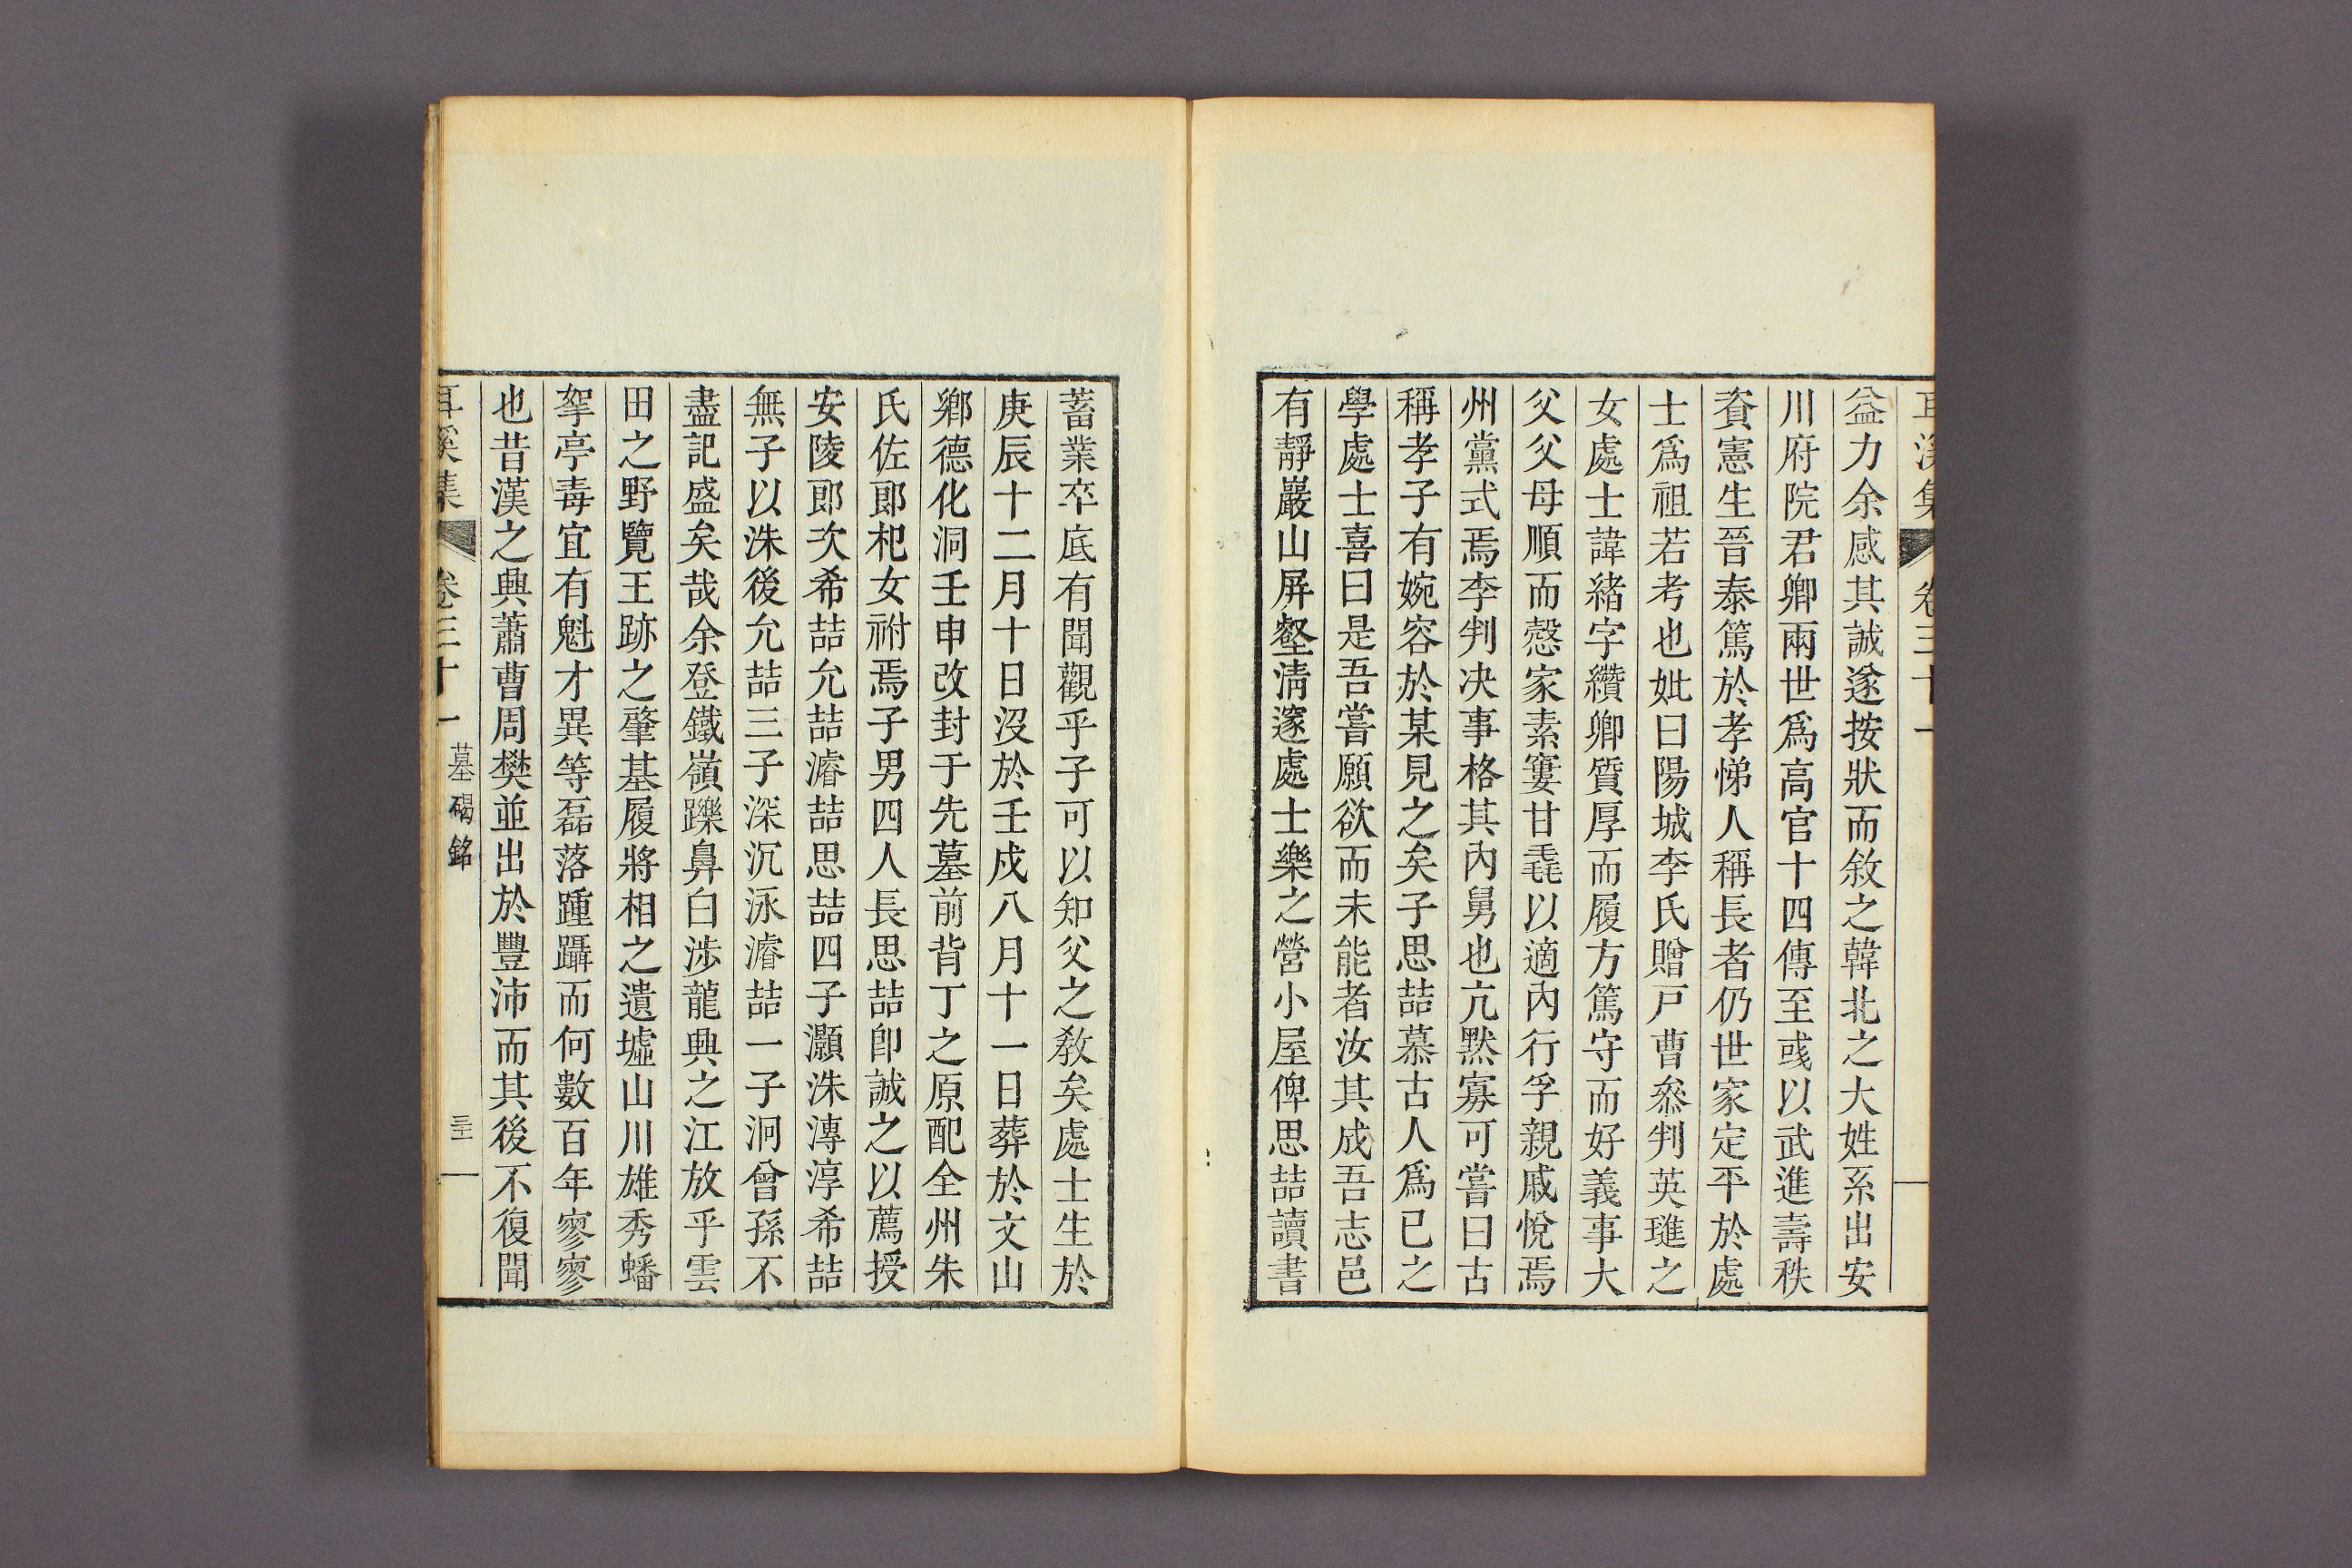 耳溪集 卷三十一
益力余感其誠遂按狀而敘之韓北之大姓系出安
川府院君卿兩世爲高官十四傳至彧以武進壽秩
資憲生晉泰篤於孝悌人稱長者仍世家定平於處
士爲祖若考也妣曰陽城李氏贈戶曹叅判英璡之
女處士諱緖字纘卿質厚而履方篤守而好義事大
父父母順而愨家素窶甘毳以適內行孚親戚悅焉
州黨式焉李判决事格其內舅也亢黙寡可嘗曰古
稱孝子有婉容於某見之矣子思喆慕古人爲已之
學處士喜曰是吾嘗願欲而未能者汝其成吾志邑
有靜巖山屏壑淸邃處士樂之營小屋俾思喆讀書
蓄業卒底有聞觀乎子可以知父之敎矣處士生於
庚辰十二月十日沒於壬戌八月十一日葬於文山
鄕德化洞壬申改封于先墓前背丁之原配全州朱
氏佐郞杞女祔焉子男四人長思喆卽誠之以薦授
安陵郞次希喆允喆濬喆思喆四子灝洙漙淳希喆
無子以洙後允喆三子深沉泳濬喆一子泂曾孫不
盡記盛矣哉余登鐵嶺躒鼻白涉龍興之江放乎雲
田之野覽王跡之肇基履將相之遺墟山川雄秀蟠
挐亭毒宜有魁才異等磊落踵躡而何數百年寥寥
也昔漢之興蕭曹周樊並出於豐沛而其後不復聞
耳溪集 卷三十一 墓碣銘 三十一